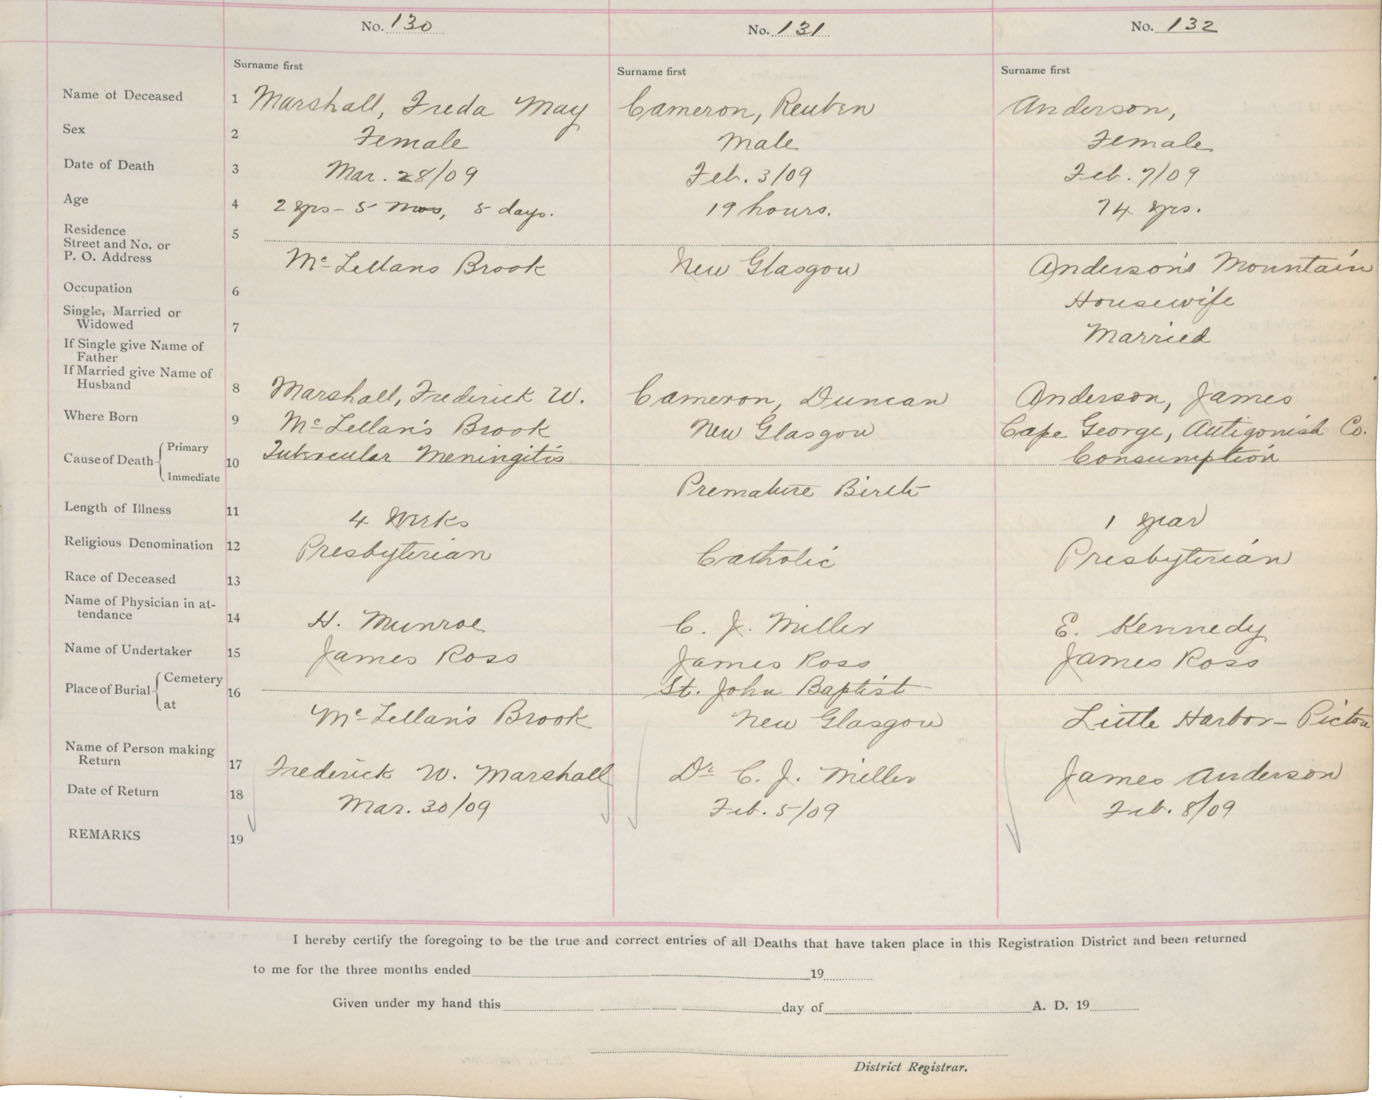 No. 130 No. 131 No. 132
Surname first Surname first Surname first
Name of Deceased 1 Marshall, Freda May Cameron, Reuben Anderson,
Sex 2 Female Male Female
Date of Death 3 Mar. 28/09 Feb. 3/09 Feb. 7/09
Age 4 2 yrs - 5 mos, 5 days. 19 hours. 74 yrs.
Residence 5
Street and No. or
P. O. Address McLellans Brook New Glasgow Anderson's Mountain
Occupation 6 Housewife
Single, Married or
Widowed 7 Married
If Single give Name of
Father
If Married give Name of
Husband 8 Marshall, Frederick W. Cameron, Duncan Anderson, James
Where Born 9 McLellan's Brook New Glasgow Cape George, Antigonish Co.
Cause of Death Primary 10 Tubercular Meningitis Consumption
Immediate Premature Birth
Length of Illness 11 4 Weeks 1 year
Religious Denomination 12 Presbyterian Catholic Presbyterian
Race of Deceased 13
Name of Physician in at-
tendance 14 H. Munroe C. J. Miller E. Kennedy
Name of Undertaker 15 James Ross James Ross James Ross
Place of Burial Cemetery 16 St. John Baptist
at McLellan's Brook New Glasgow Little Harbor - Pictou
Name of Person making
Return 17 Frederick W. Marshall Dr C. J. Miller James Anderson
Date of Return 18 Mar. 30/09 Feb. 5/09 Feb. 8/09
REMARKS 19
I hereby certify the foregoing to be the true and correct entries of all Deaths that have taken place in this Registration District and been returned
to me for the three months ended 19
Given under my hand this day of A. D. 19
District Registrar.